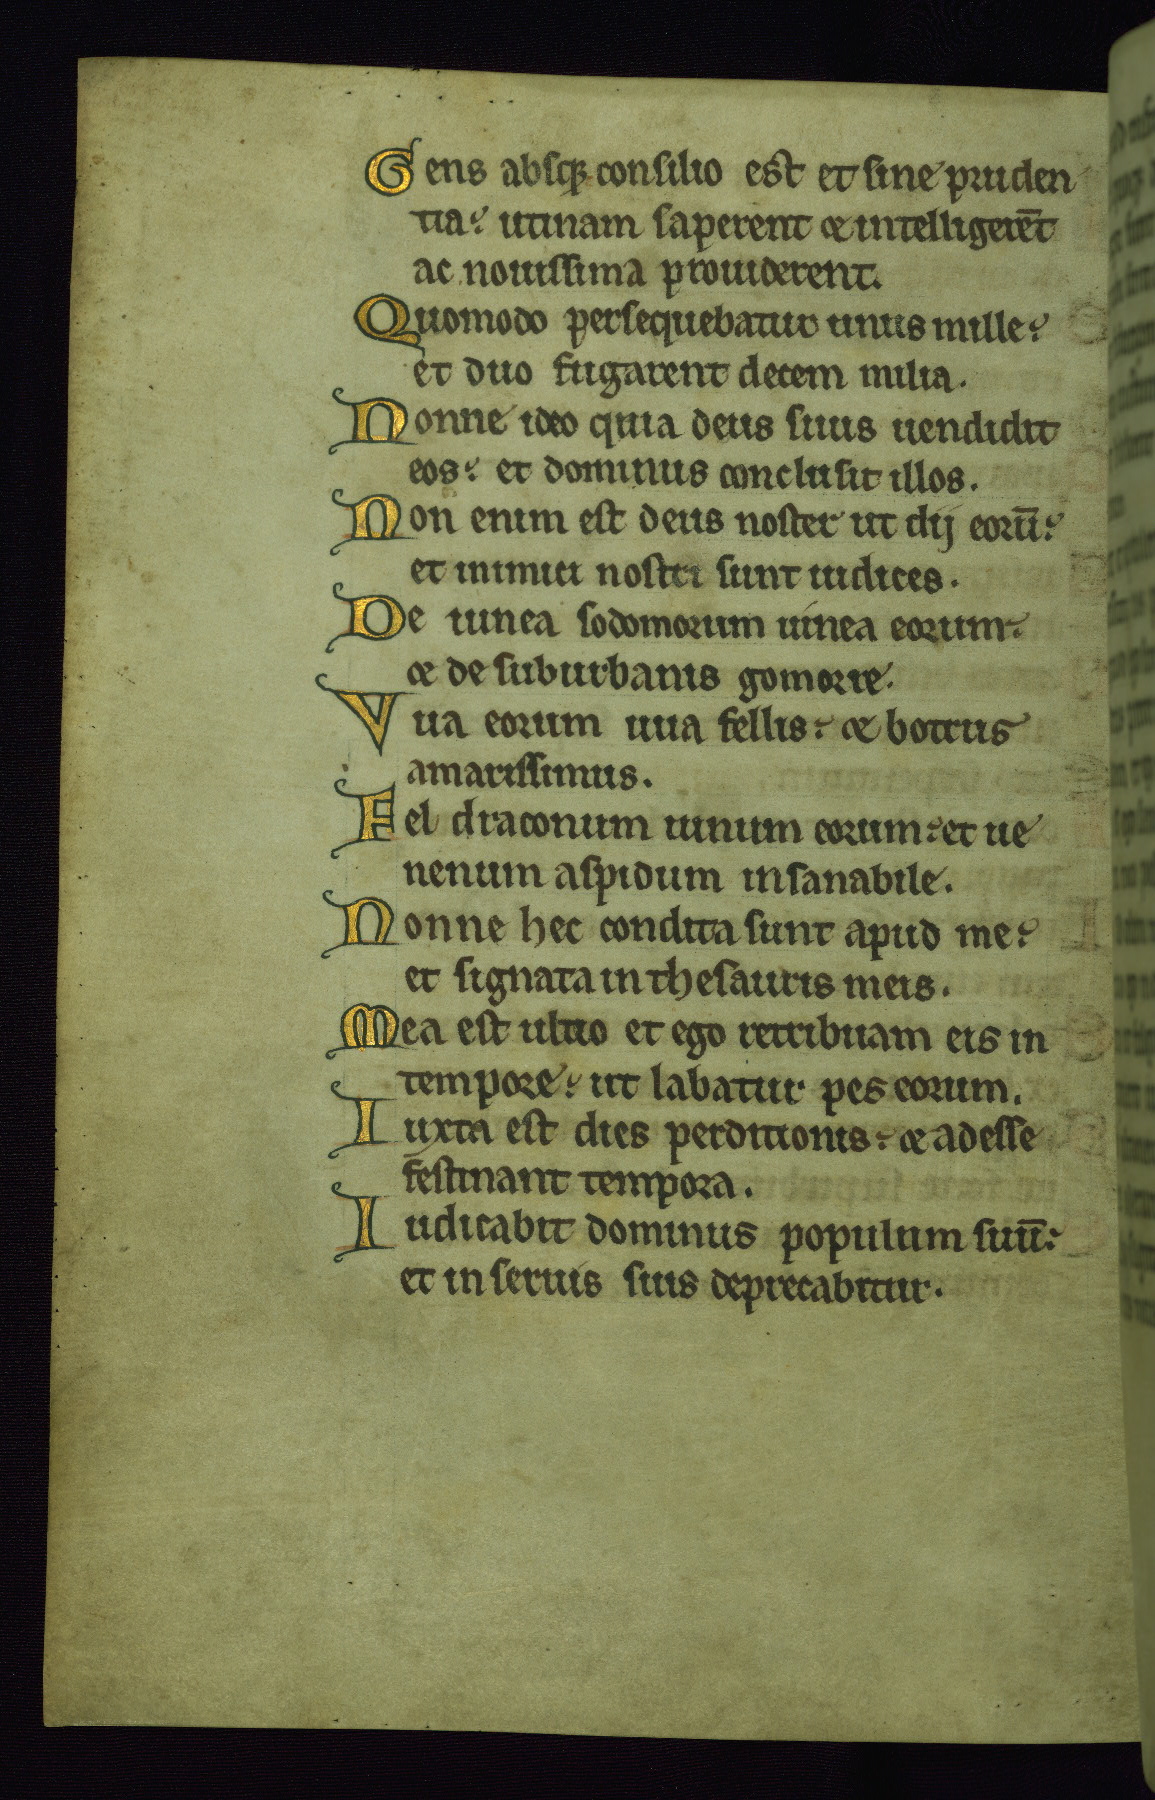 Gens absq; consilio est et sine pruden
tia: utinam saperent & intelligerēt
ac nouissima prouiderent.
Quomodo persequebatur unus mille:
et duo fugarent decem milia.
Nonne ideo quia deus suus uendidit
eos: et dominus conclusit illos.
Non enim est deus noster ut dij eorū:
et inimici nostri sunt iudices.
De uinea sodomorum uinea eorum:
& de suburbanis gomorre.
Vua eorum uua fellis: & botrus
amarissimus.
Fel draconum uinum eorum: et ue
nenum aspidum insanabile.
Nonne hec condita sunt apud me:
et signata in thesauris meis.
Mea est ultio et ego retribuam eis in
tempore: ut labatur pes eorum.
Iuxta est dies perditionis: & adesse
festinant tempora.
Iudicabit dominus populum suū:
et in seruis suis deprecabitur.